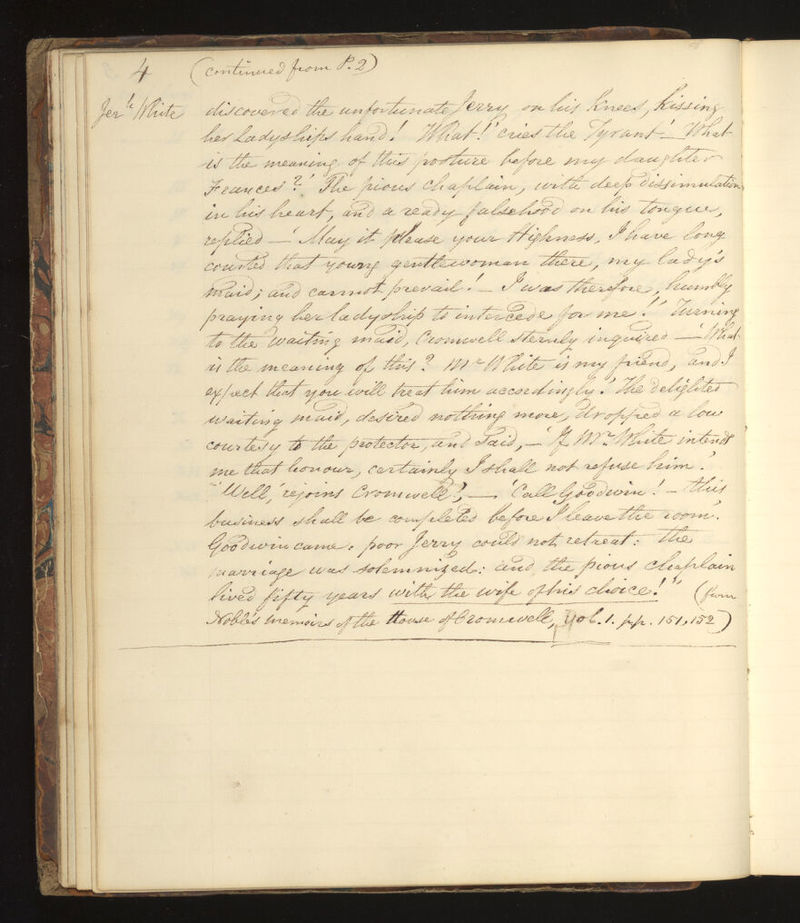 4 (continued from P. 2)
Jerh White discovered the unfortunate Jerry on his knees, kissing
her Ladyships hand! "What!" cries the Tyrant! - What
is the meaning of this posture before my daughter
Frances?" The pious chaplain, with deep dissimulation
in his heart, and a ready falsehood on his tongue,
replied — 'May it please your Highness, I have long
courted that young gentlewoman there, my lady's
maid; and cannot prevail! - I was therefore, humbly
praying her ladyship to intercede for me!" Turning
to the waiting maid, Cromwell sternly inquired — 'What
is the meaning of this? Mr White is my friend, and I
expect that you will treat him accordingly.' The delighted
waiting maid, desired nothing more, dropped a low
courtesy to the protector, and said, — 'If Mr White intends
me that honour, certainly I shall not refuse him.'
"Well,' rejoins Cromwell, — 'Call Goodwin! - this
business shall be completed before I leave the room'.
Goodwin came. poor Jerry could not retreat: the
marriage was solemnized: and the pious chaplain
lived fifty years with the wife of his choice!" (from
Noble's memoirs of the House of Cromwell, Vol. 1. pp. 151, 152)